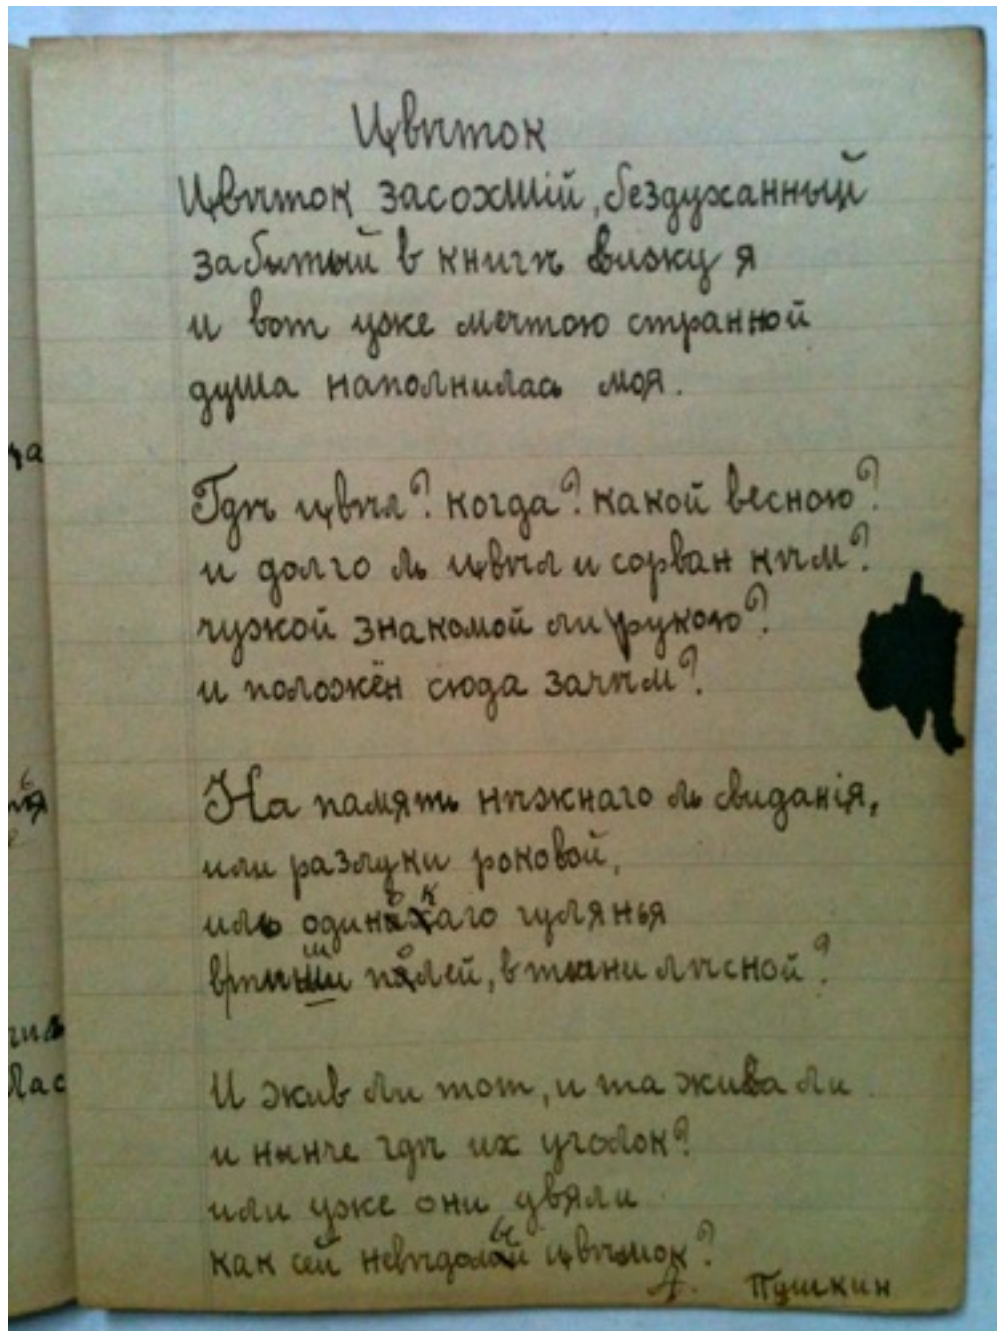 Цвѣток
Цвѣток засохшій, бездуханный
забытый в книгѣ вижу я
и вот уже мечтою странной
душа наполнилась моя.
Гдѣ цвѣл? когда? какой весною?
и долго ль цвѣл и сорван кѣм?
чужой знакомой ли рукою?
и положён сюда зачѣм?
На память нѣжнаго ль свиданія,
или разлуки роковой,
иль одинокаго гулянья
в тиши полей, в тѣни лѣсной?
И жив ли тот, и та жива ли
и нынче гдѣ их уголок?
или уже они увяли
как сей невѣдомый цвѣток?
А. Пушкин